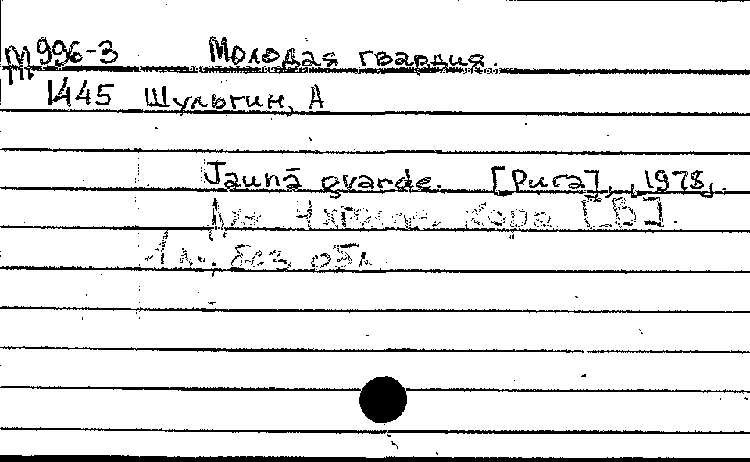 М 996-3 Молодая гвардия.
1445 Шульгин, А
Jaunā gvarde. [Рига], 1978.
Для 4хголос. хора [В].
1 л., без обл